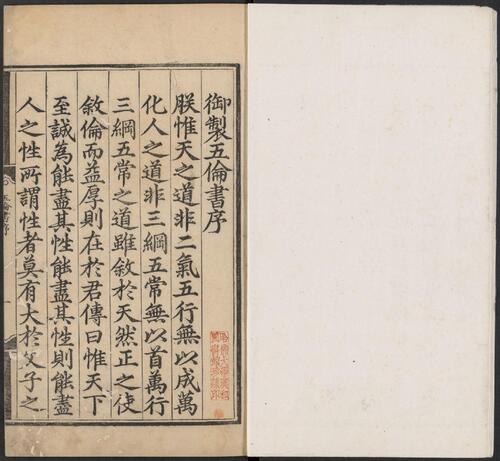 御製五倫書序
朕惟天之道非二氣五行無以成萬
化人之道非三綱五常無以首萬行
三綱五常之道雖敘於天然正之使
敘倫而益厚則在於君傳曰惟天下
至誠為能盡其性能盡其性則能盡
人之性所謂性者莫有大於父子之